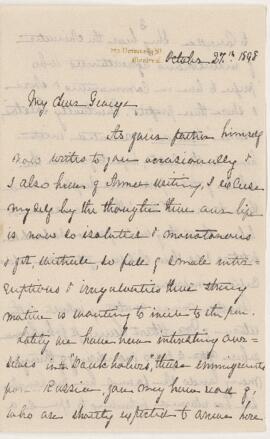 293 University St
Montreal
October 27th 1898
My dear George
As your father himself
now writes to you occasionally &
I also hear of Annee writing, I excuse
myself by the thought that our life
is now so isolated & monotonous
& yet, withal, so full of small inter-
ruptions & irregularities that
matter is wanting to incite to the pen.
Lately we have been interesting our-
selves in "Doukhobors", these immigrants
from Russia you may have read of,
who are shortly expected to arrive here